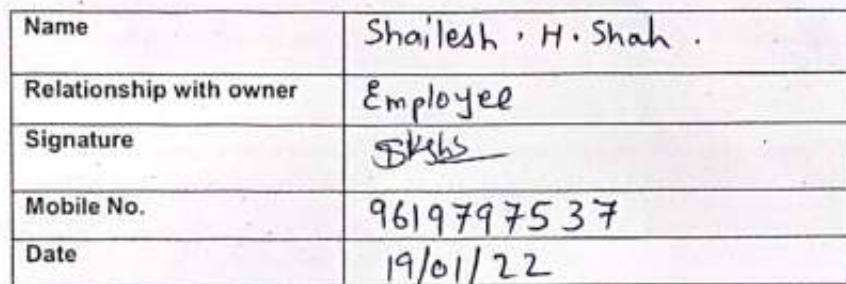 Name Shailesh . H . Shah .
Relationship with owner Employee
Signature
Mobile No. 9619797537
Date 19/01/22